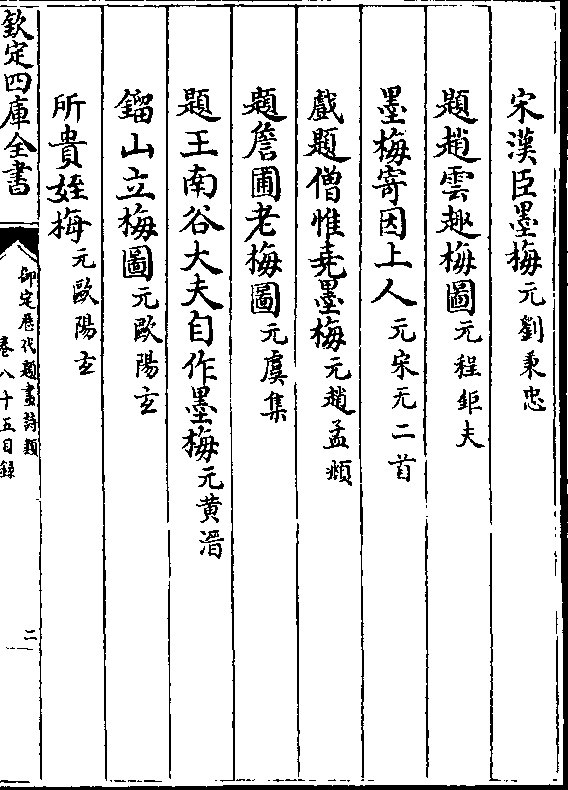 宋漢臣墨梅元劉秉忠
題趙雲趣梅圖元程鉅夫
墨梅寄因上人元宋无二首
戲題僧惟堯墨梅元趙孟頫
題詹圃老梅圖元虞集
題王南谷大夫自作墨梅元黄溍
鎦山立梅圖元歐陽玄
所貴姪梅元歐陽玄
欽定四庫全書
御定歷代題畫詩類
卷八十五目錄
二